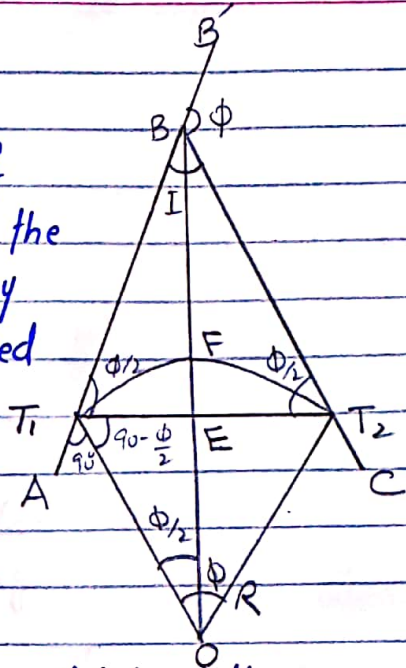 B'
B φ
I
the
y
ed
F
φ/2
φ/2
T₁
90-φ/2
E
T₂
90°
A
C
φ/2
φ
R
O